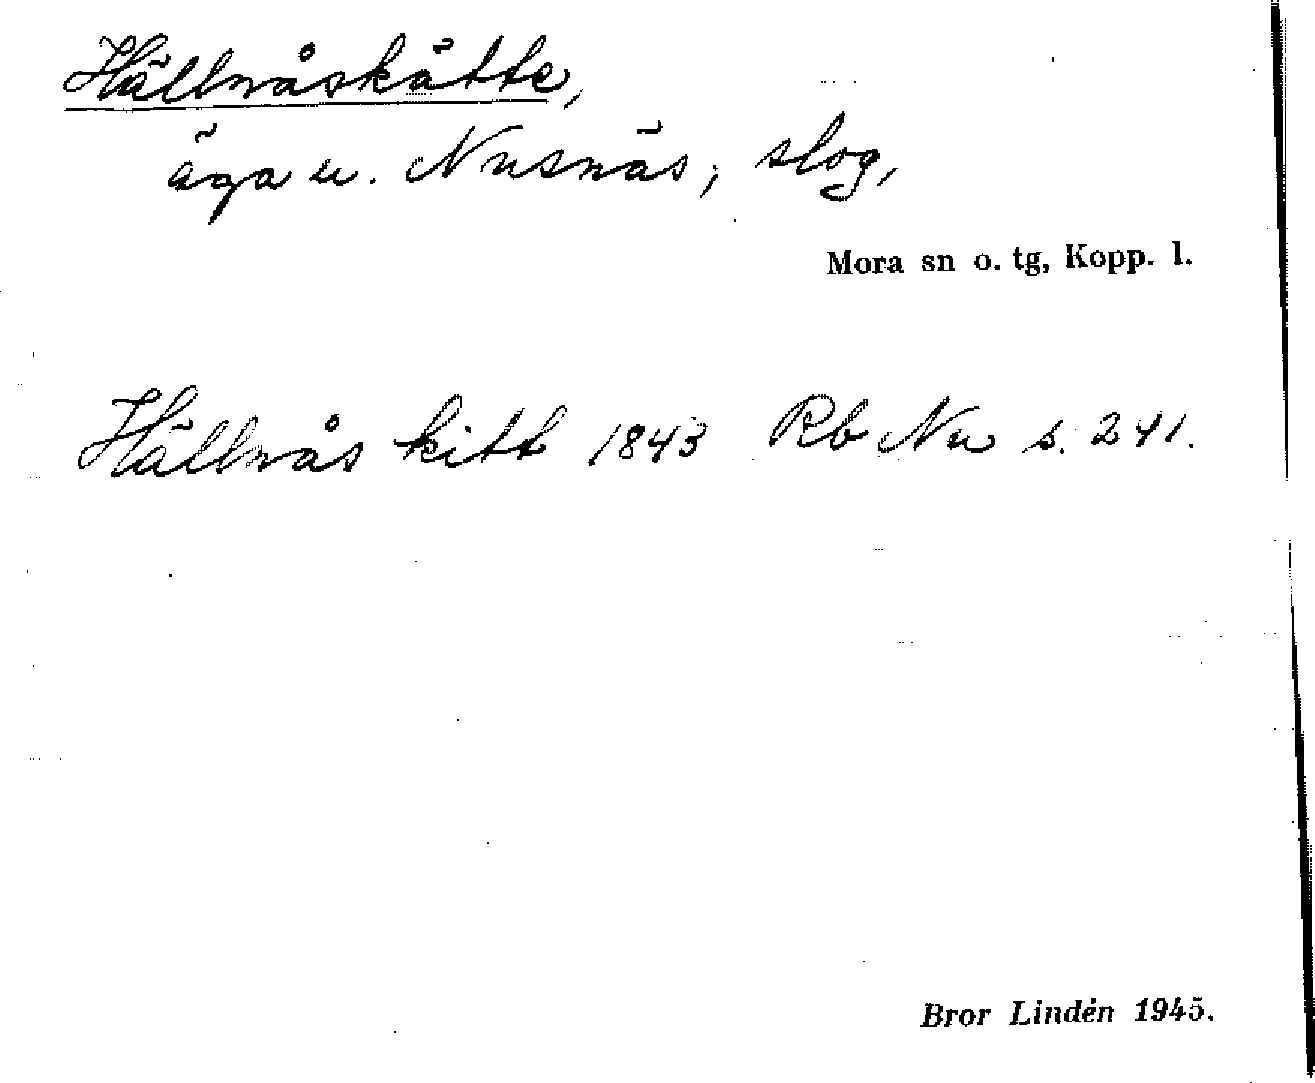 Hällnåskätte,
äga u. Nusnäs; slog,
Mora sn o. tg, Kopp. l.
Hällnås kitt 1843 Rb Nu s. 241.
Bror Lindén 1945.